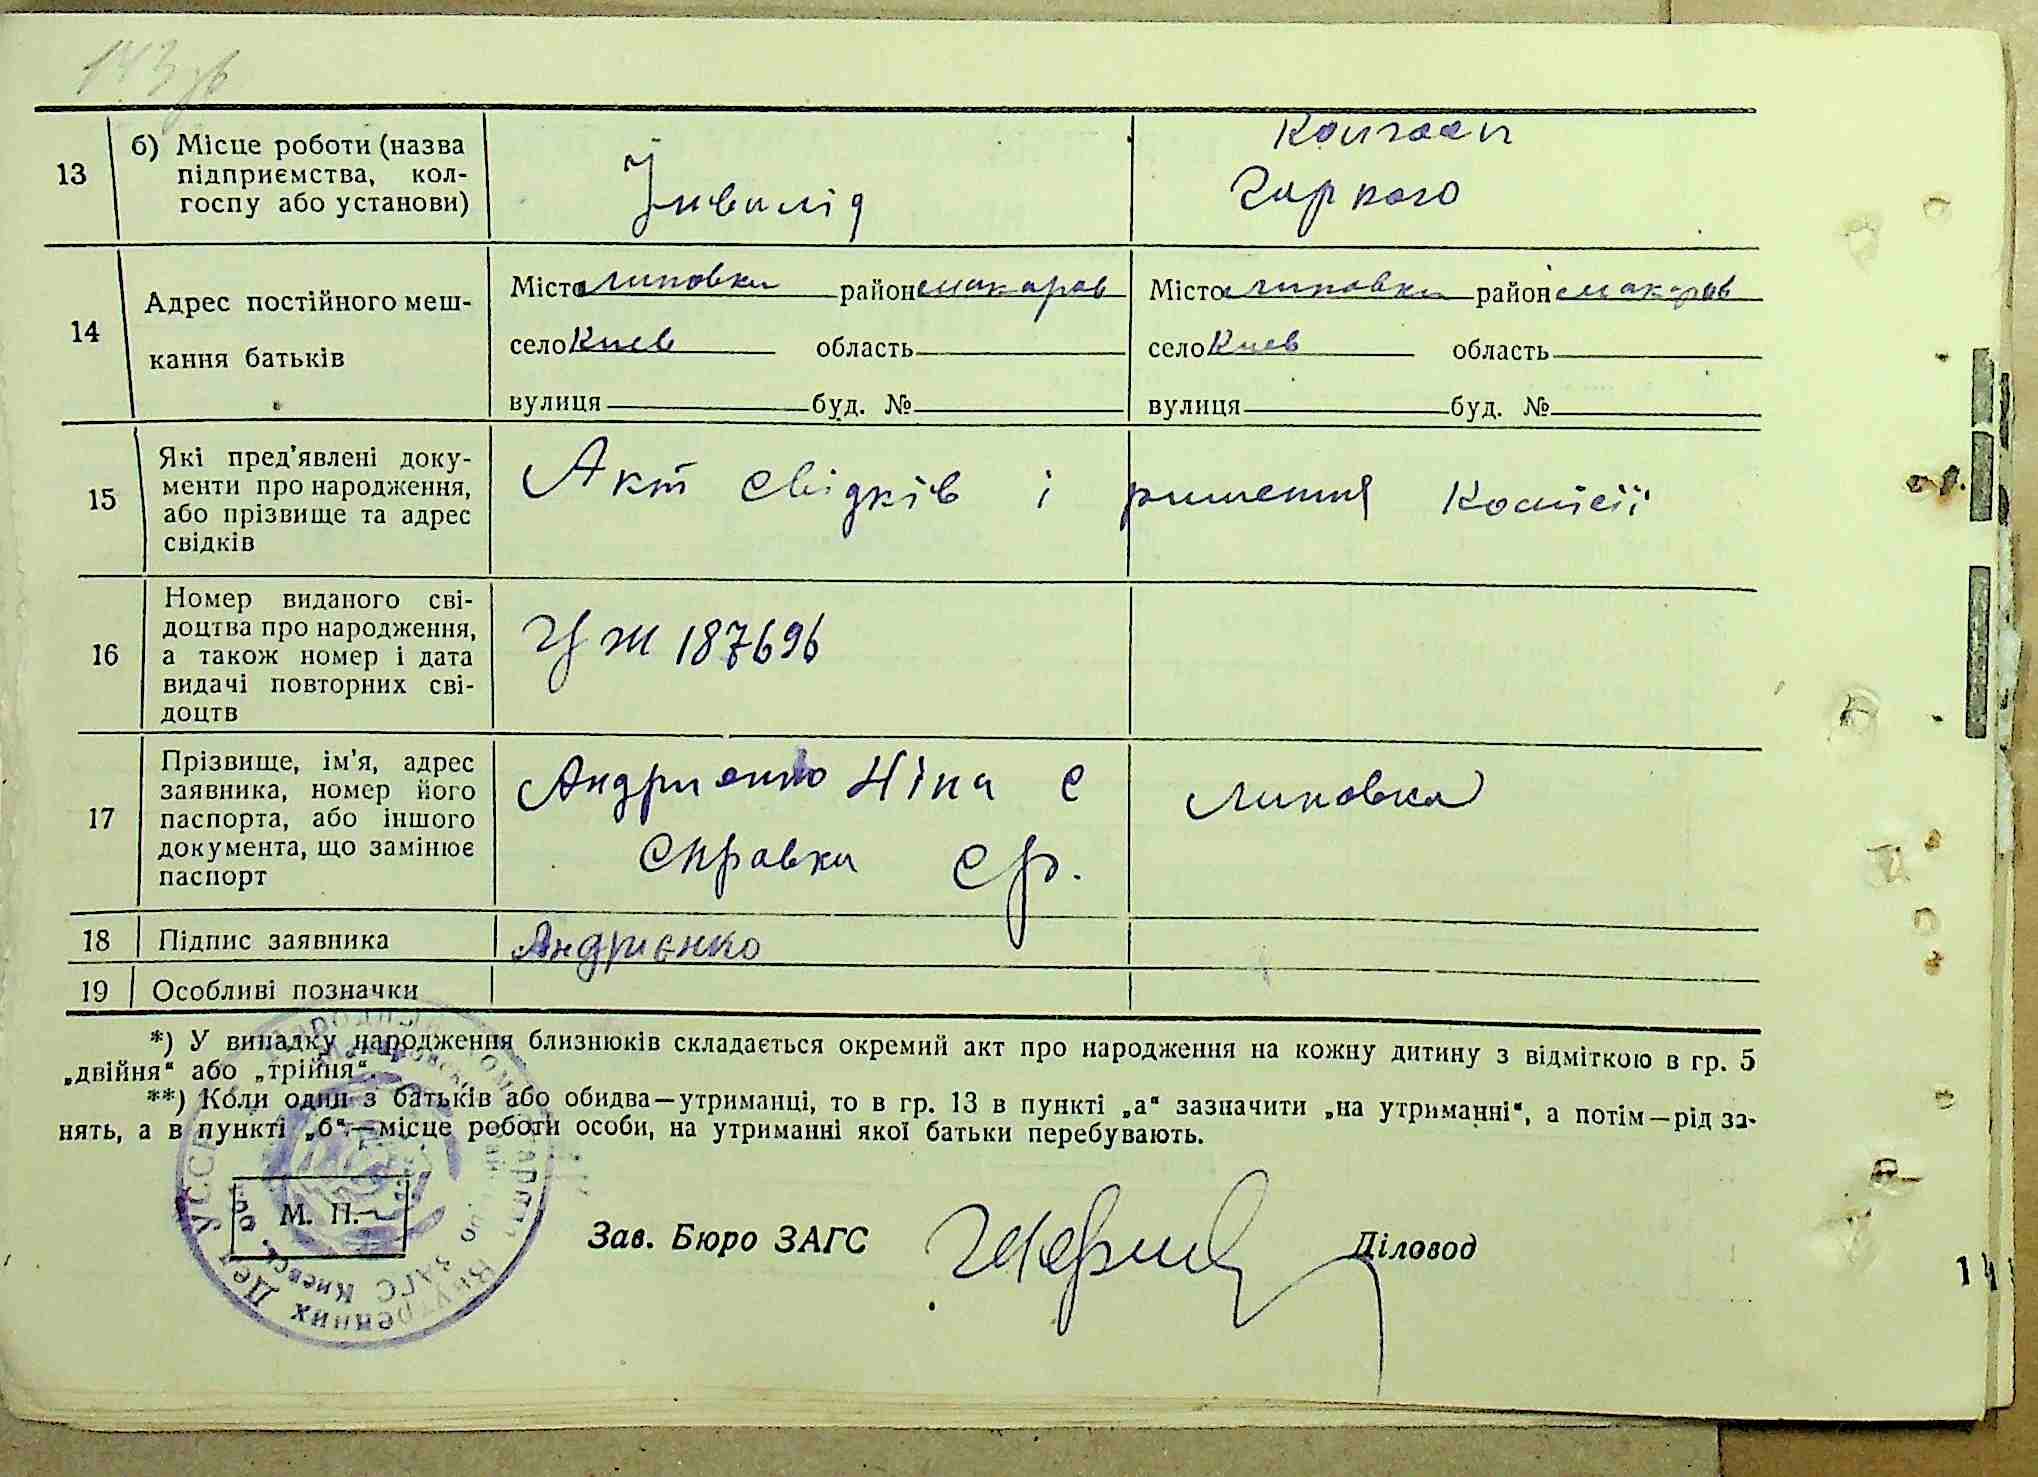 143зв
13
б) Місце роботи (назва
підприємства, кол-
госпу або установи)
Інвалід
Колгосп
Горкого
14
Адрес постійного меш-
кання батьків
Місто Липовка район Макаров
село Киев область
вулиця буд. №
Місто Липовка район Макаров
село Киев область
вулиця буд. №
15
Які пред'явлені доку-
менти про народження,
або прізвище та адрес
свідків
Акт свідків і ришення комісії
16
Номер виданого сві-
доцтва про народження,
а також номер і дата
видачі повторних сві-
доцтв
УЖ 187696
17
Прізвище, ім'я, адрес
заявника, номер його
паспорта, або іншого
документа, що замінює
паспорт
Андриенко Ніна С
справка ср.
Липовка
18
Підпис заявника
Андриєнко
19
Особливі позначки
*) У випадку народження близнюків складається окремий акт про народження на кожну дитину з відміткою в гр. 5
„двійня“ або „трійня“.
**) Коли один з батьків або обидва—утриманці, то в гр. 13 в пункті „а“ зазначити „на утриманні“, а потім—рід за-
нять, а в пункті „б“—місце роботи особи, на утриманні якої батьки перебувають.
М. П.
Зав. Бюро ЗАГС
Діловод
УССР Народный Комиссариат Внутренних Дел
ЗАГС Киевск. обл.